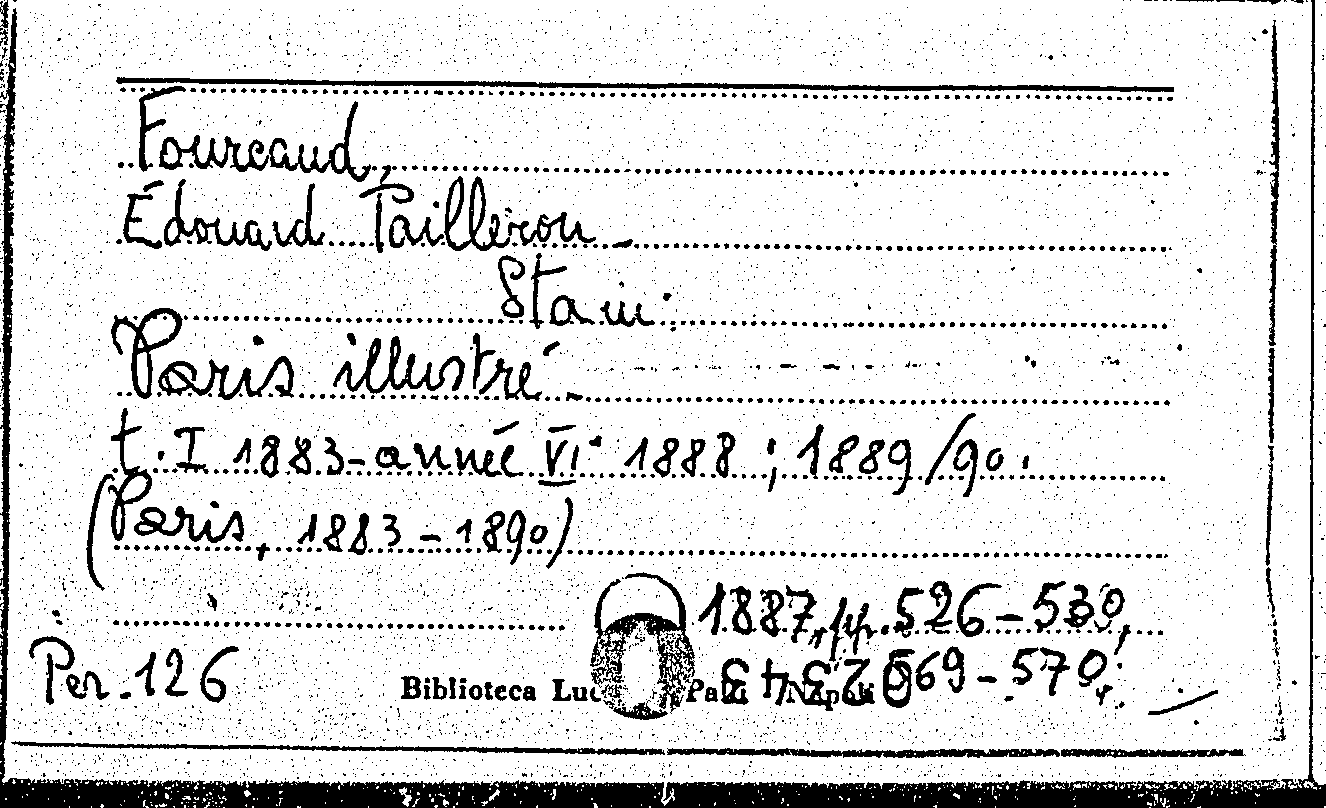 Fourcaud,
Édouard Pailleron -
Sta in:
Paris illustré -
t. I 1883-année VI. 1888 ; 1889/90.
(Paris, 1883-1890)
1887, pp. 526-530,
569-570.
Per. 126
Biblioteca Pa Napoli